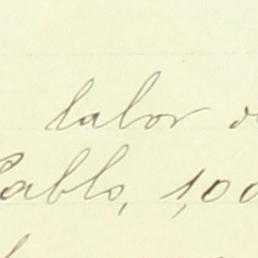 labor
Pablo, 1,00